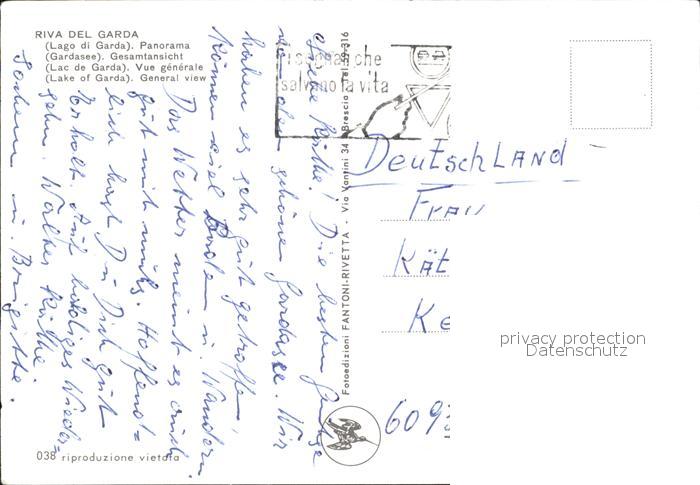 RIVA DEL GARDA
(Lago di Garda). Panorama
(Gardasee). Gesamtansicht
(Lac de Garda). Vue générale
(Lake of Garda). General view
Liebe Käthe! Die besten Grüße
von dem schönen Gardasee. Wir
haben es sehr gut getroffen,
können viel Baden u. Wandern.
Das Wetter meint es auch
gut mit uns. Hoffent=
lich hast Du Dich gut
erholt. Auf baldiges Wieder=
sehn. Walter Käthe
Jochem u. Brigitte.
038 riproduzione vietata
Fotoedizioni FANTONI-RIVETTA - Via Mantini 34 Brescia Tel. 59-316
che
salvano la vita
DEUTSCHLAND
FRAU
KÄT
KE
609
privacy protection
Datenschutz